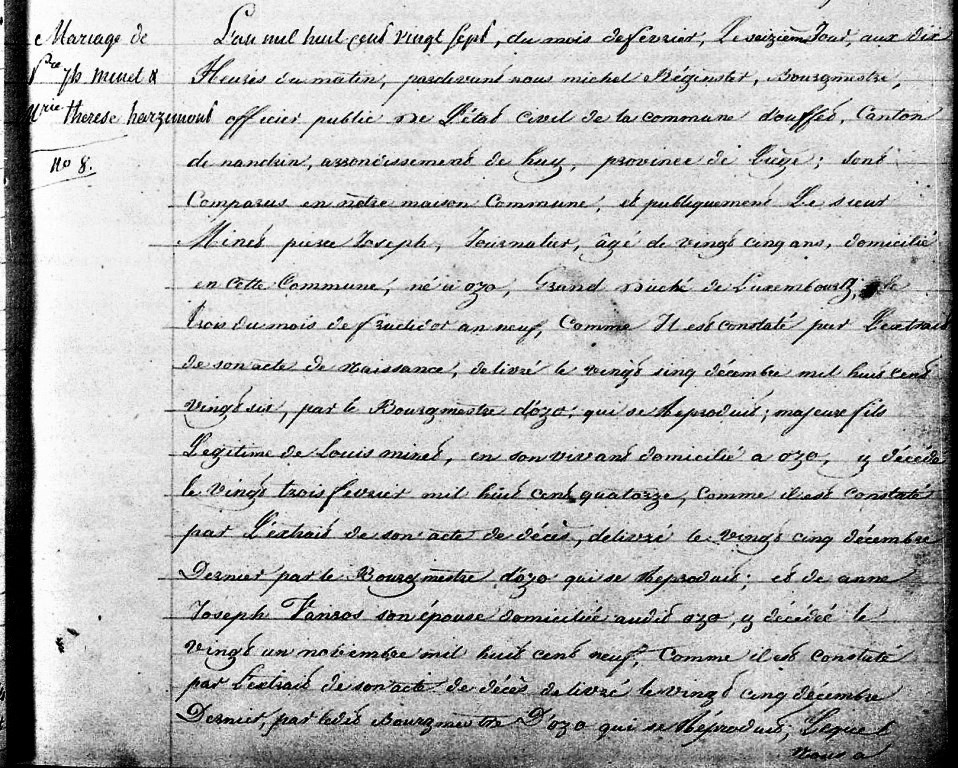 Mariage de
Pre Jh minet &
Mrie therese harzimont
No 8.
L'an mil huit cent vingt sept, du mois de fevrier, Le seizièm Jour, aux dix
Heures du matin, pardevant nous michel Réginster, Bourgmestre,
officier public De L'état civil de la commune d'ouffet, Canton
de nandrin, arrondissement de huy, province de Liège; sont
Comparus en nôtre maison Commune, et publiquement Le sieur
Minet pierre Joseph, Journalier, âgé de vingt cinq ans, domicilié
en cette Commune, né à ozo, Grand Duché de Luxembourg, le
trois du mois de fructidor an neuf, Comme Il est constaté par L'extrait
de son acte de Naissance, delivré le vingt sinq décembre mil huit cent
vingt six, par le Bourgmestre d'ozo, qui se Reproduit; majeure fils
Legitime de Louis minet, en son vivant domicilié a ozo, y décédé
le vingt trois fevrier mil huit cent quatorze, Comme il est constaté
par L'extrait de son acte de décès, delivré le vingt cinq décembre
Dernier par le Bourgmestre d'ozo qui se Reproduit; et de anne
Joseph son épouse domiciliée audit ozo, y décédée le
vingt un novembre mil huit cent neuf, Comme il est constaté
par L'extrait de son acte de décès delivré le vingt cinq décembre
Dernier, par ledit Bourgmestre D'ozo qui se Réproduit; Lequel
nous a